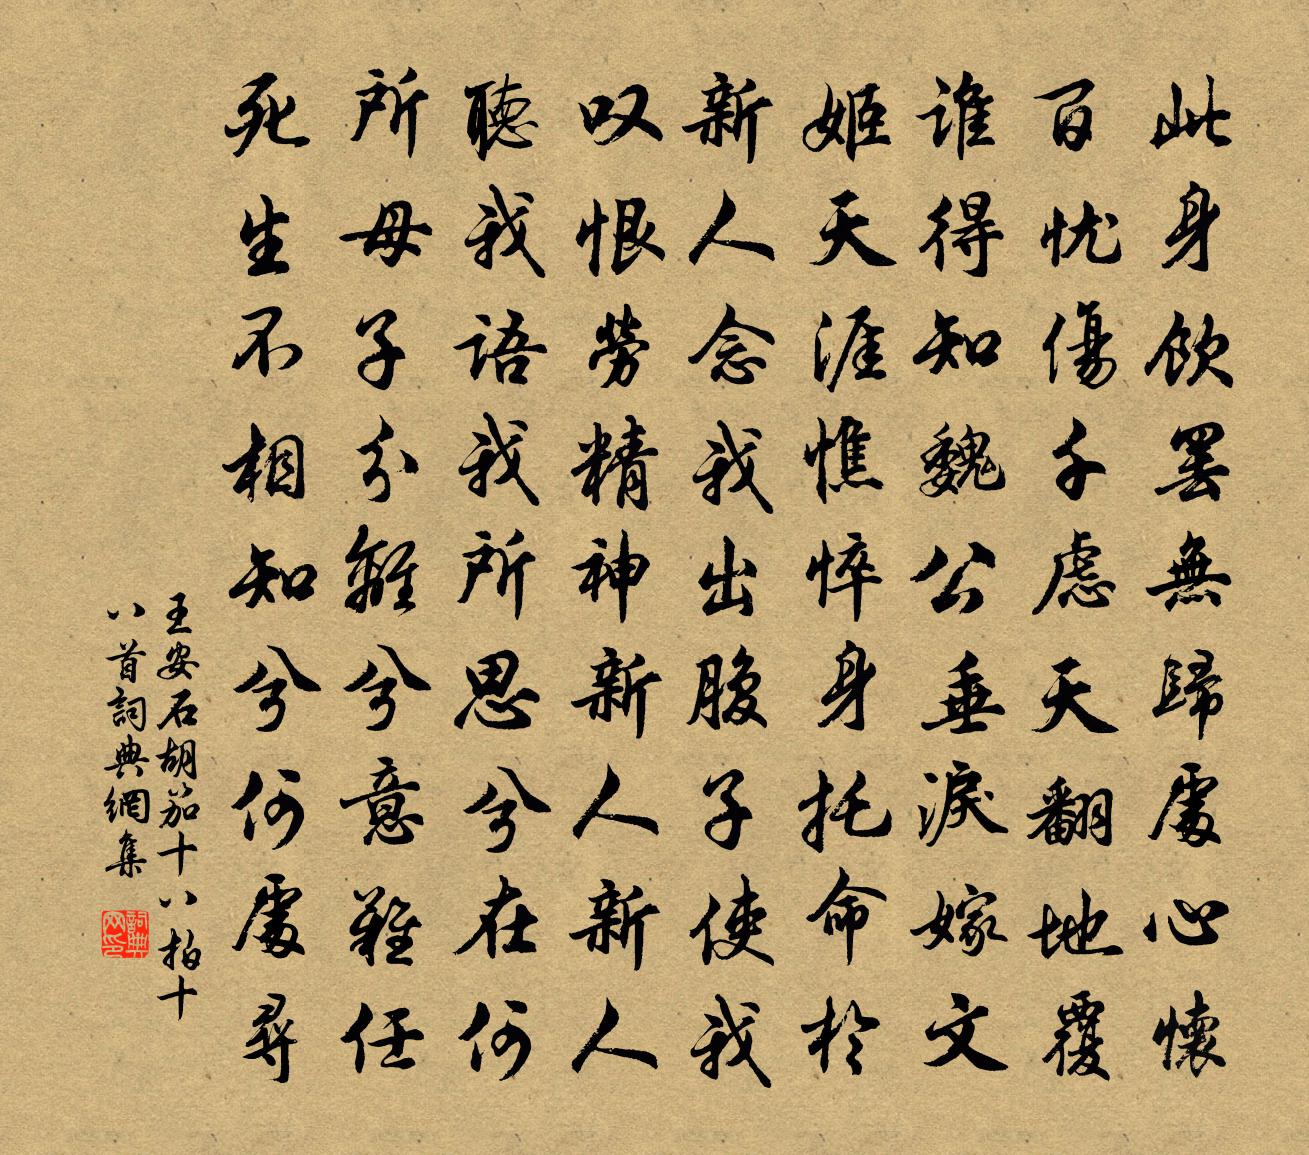 此身飲罢無歸處心懷
百忧傷千慮天翻地覆
谁得知魏公垂淚嫁文
姬天涯憔悴身托命於
新人念我出腹子使我
叹恨勞精神新人新人
聽我語我所思兮在何
所母子分離兮意難任
死生不相知兮何處尋
王安石胡笳十八拍十
八首詞典網集
詞典网印